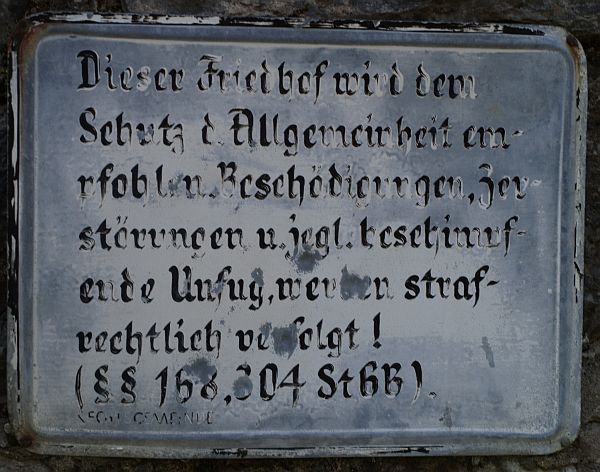 Dieser Friedhof wird dem
Schutz d. Allgemeinheit em-
pfohlen. Beschädigungen, Zer-
störungen u. jegl. beschimpf-
ende Unfug, werden straf-
rechtlich verfolgt!
(§§ 168, 304 StGB).
GEMEINDE